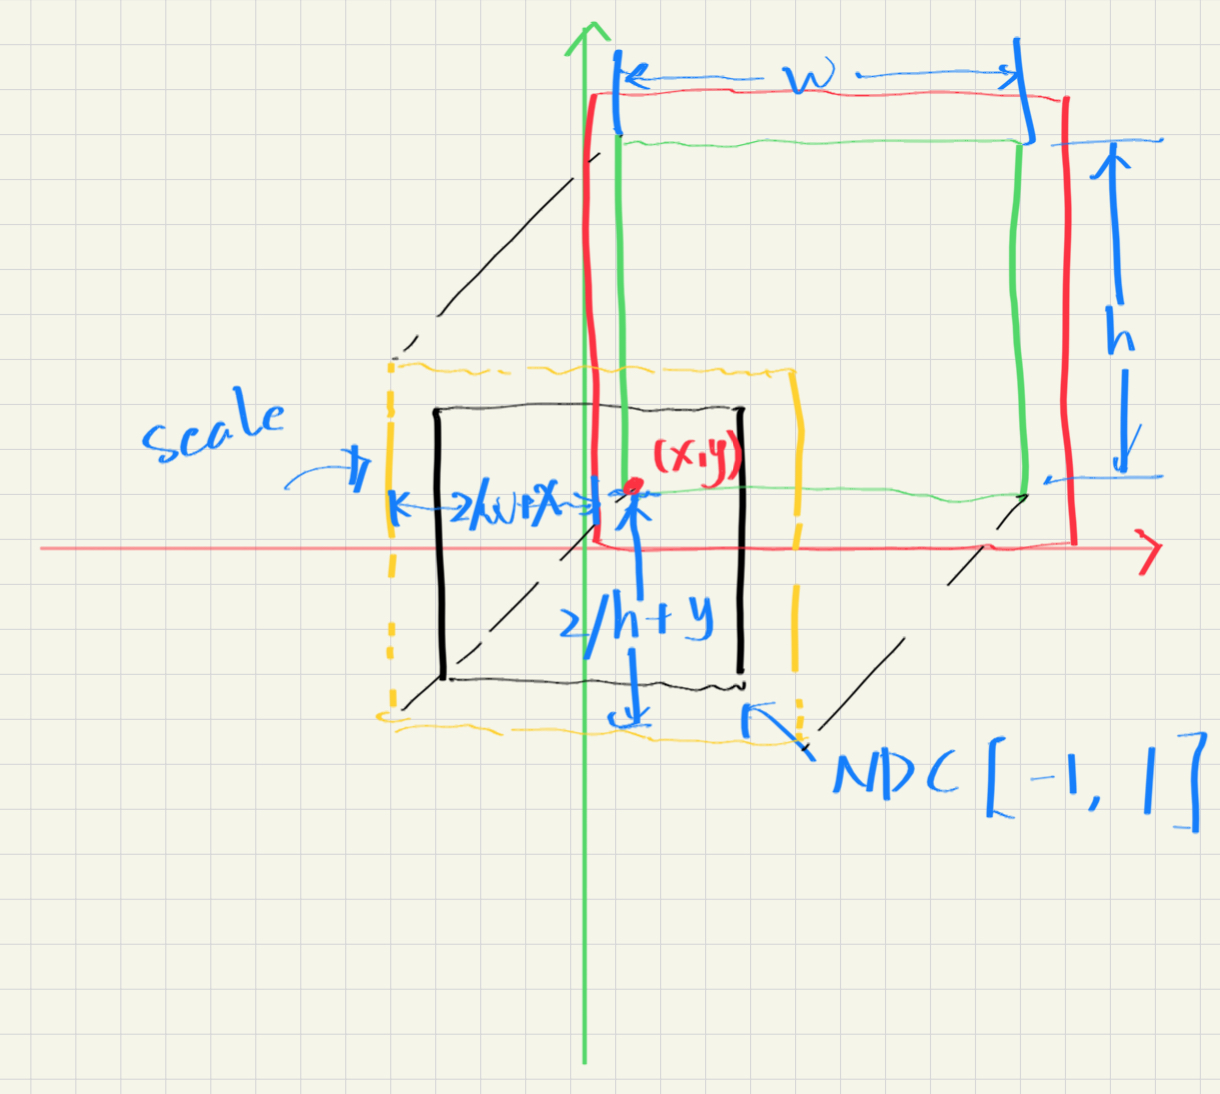 w
h
scale
(x,y)
2/w+x
2/h+y
NDC[-1, 1]